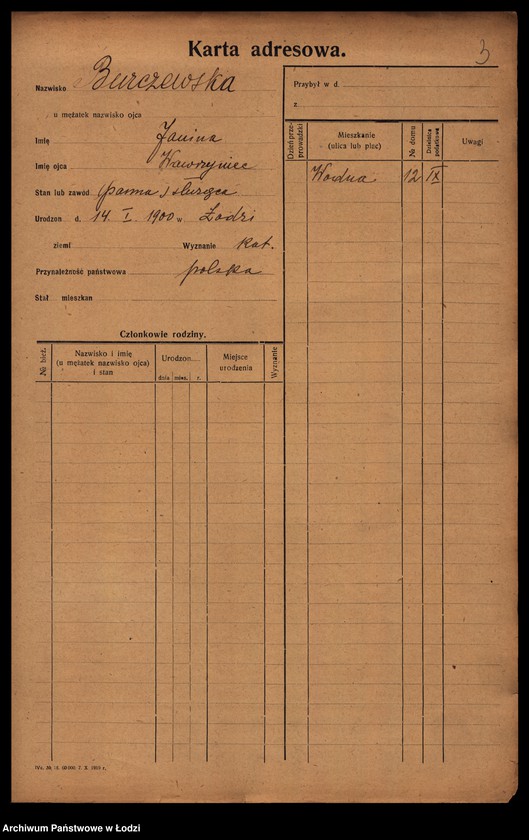 Karta adresowa.
3
Nazwisko Burczewska
u mężatek nazwisko ojca
Imię Janina
Imię ojca Wawrzyniec
Stan lub zawód (panna) służąca
Urodzon d. 14. I. 1900 w Łodzi
ziemi Wyznanie kat.
Przynależność państwowa polska
Stał mieszkan
Członkowie rodziny.
№ bież.
Nazwisko i imię
(u mężatek nazwisko ojca)
i stan
Urodzon
dnia mies. r.
Miejsce
urodzenia
Wyznanie
Przybył w d.
z
Dzień przeprowadzki
Mieszkanie
(ulica lub plac)
№ domu
Dzielnica podatkowa
Uwagi
Wodna 12 IX
Archiwum Państwowe w Łodzi